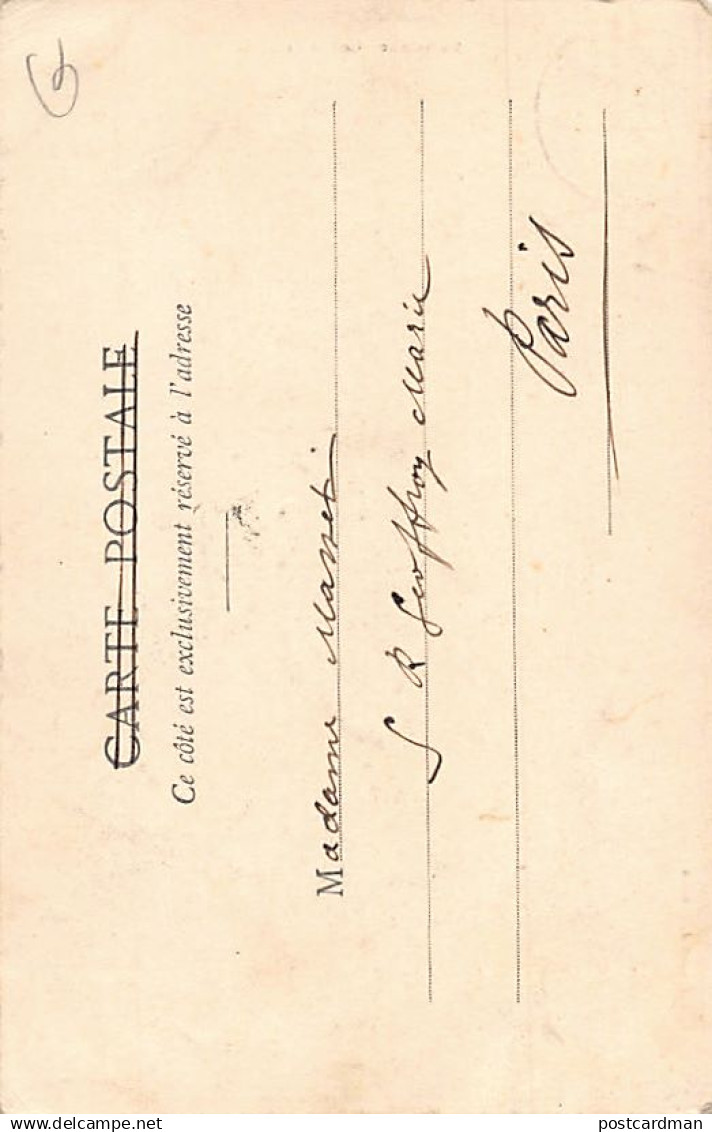 CARTE POSTALE
Ce côté est exclusivement réservé à l'adresse
Madame Masset
5 R Geoffroy Marie
Paris
delcampe.net
postcardman